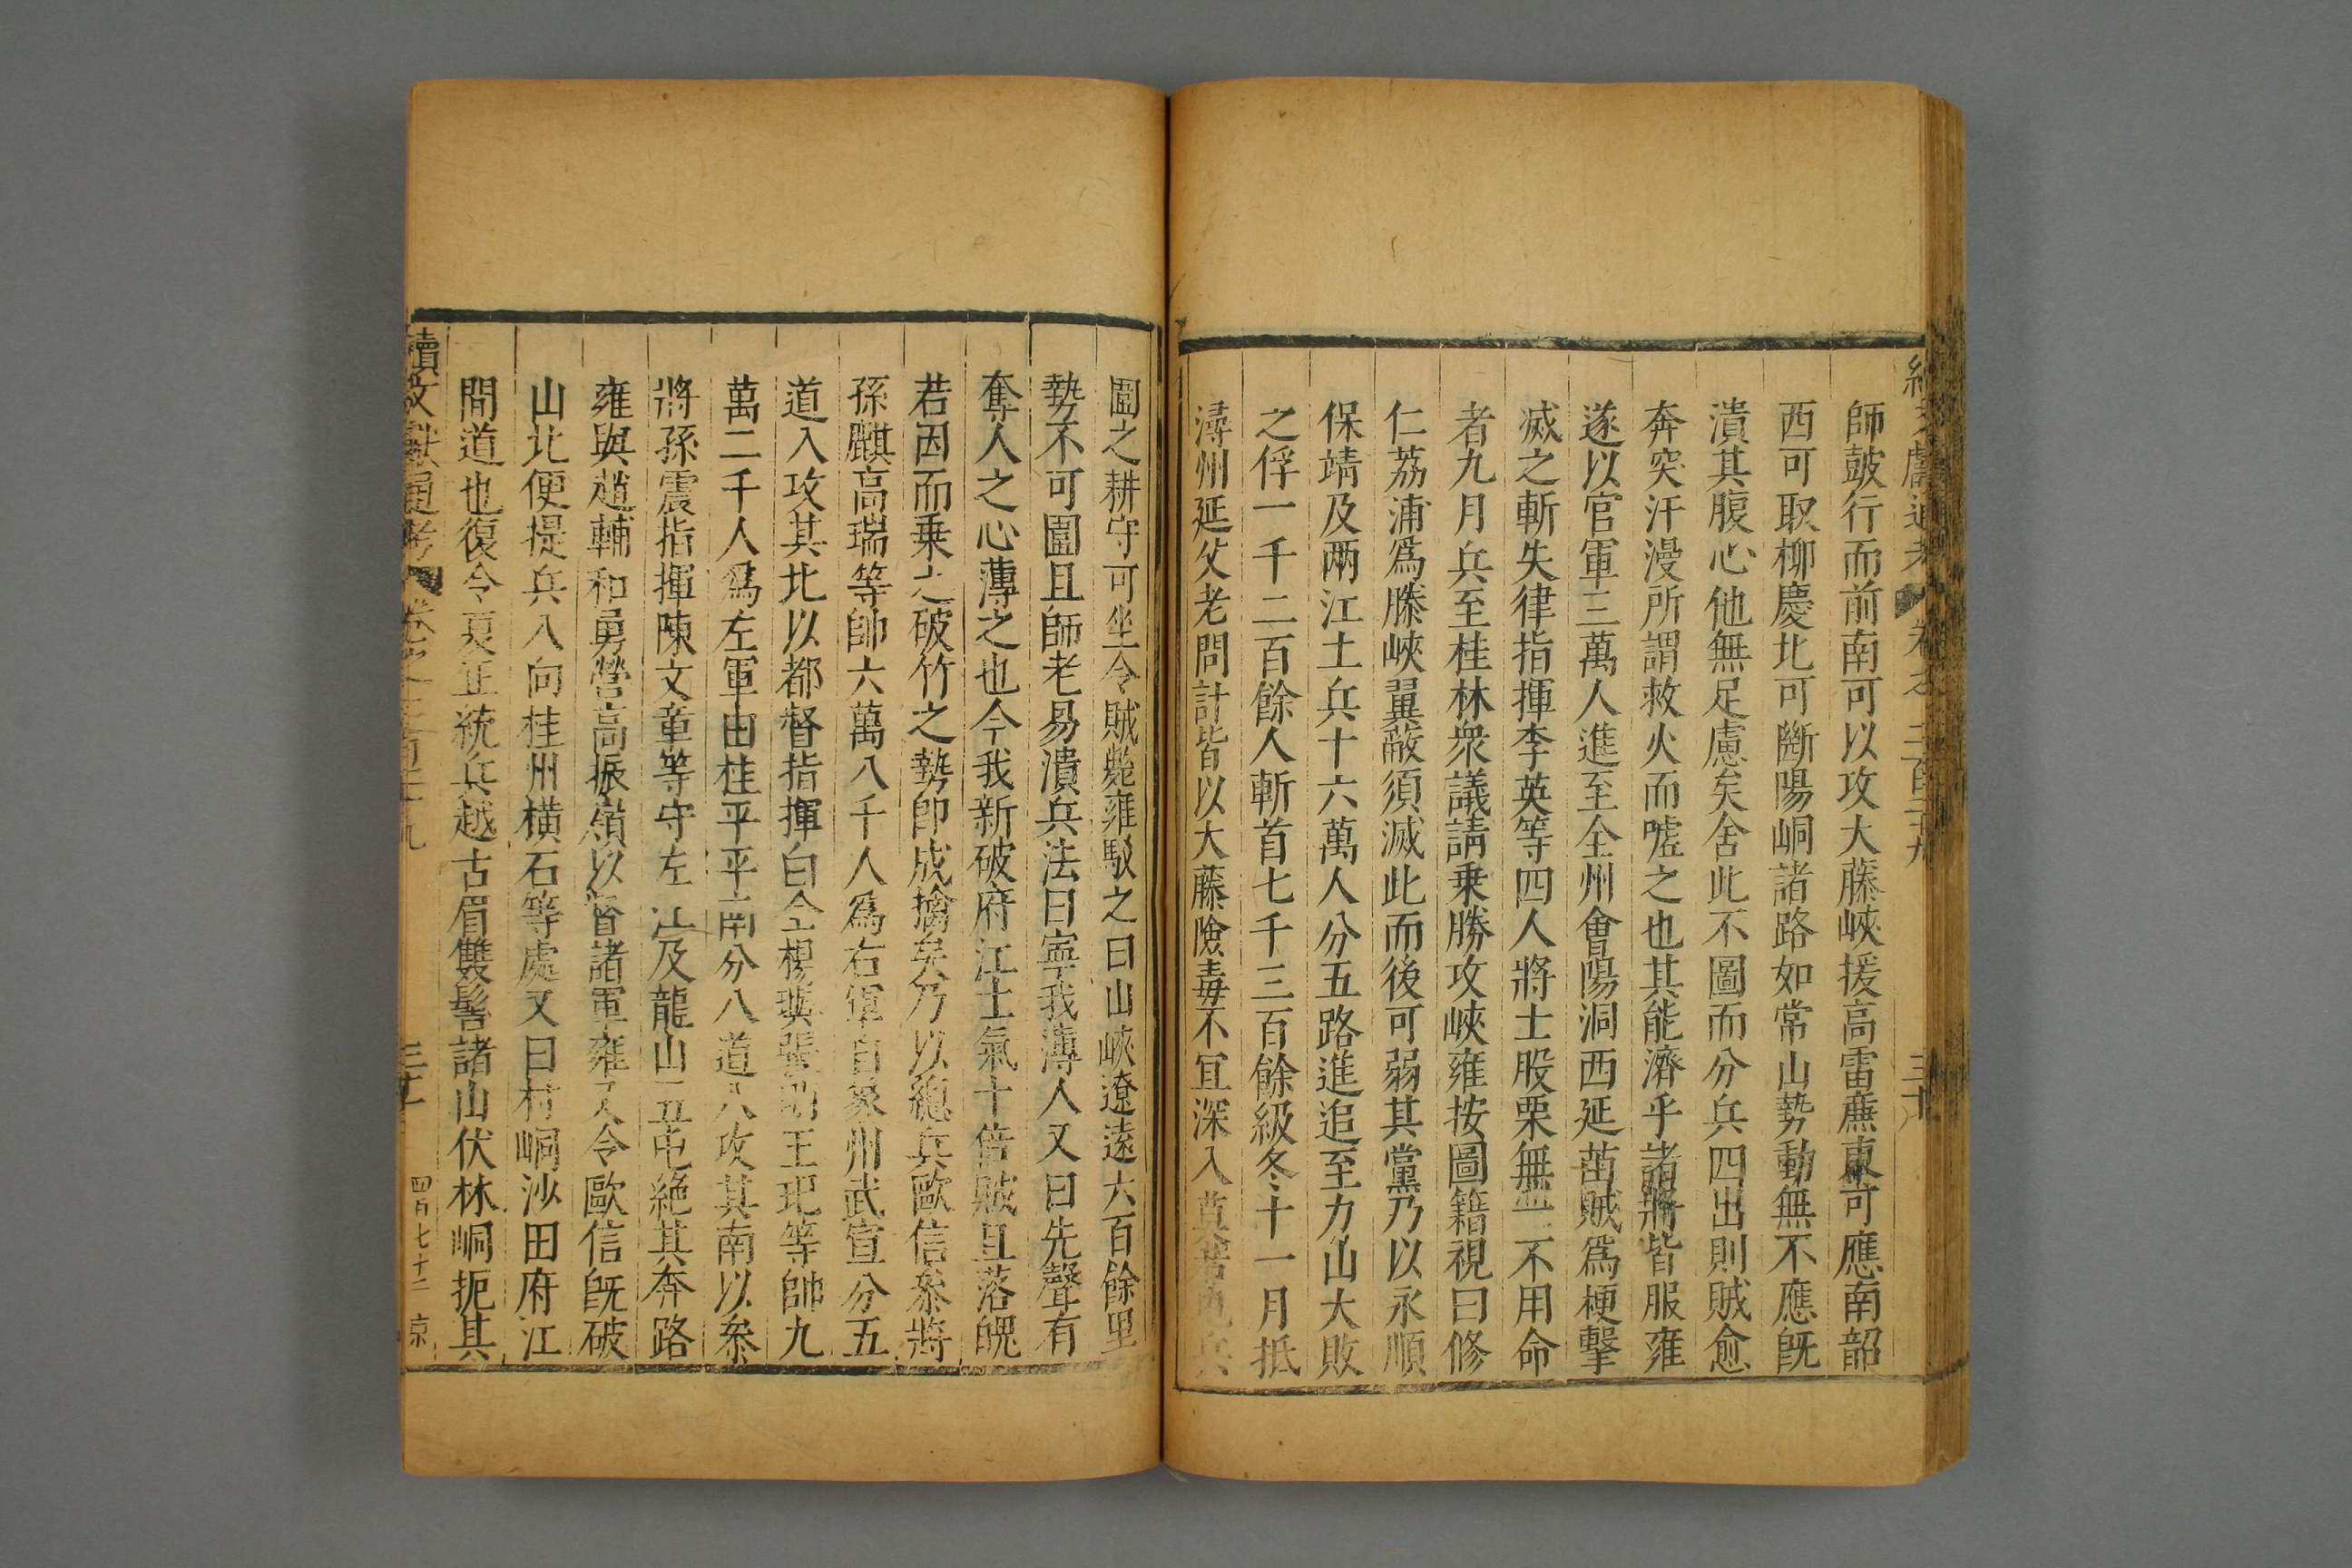 師鼓行而前南可以攻大藤峽援高雷廉東可應南韶
西可取柳慶北可斷陽峒諸路如常山勢動無不應旣
潰其腹心他無足慮矣舍此不圖而分兵四出則賊愈
奔突汗漫所謂救火而噓之也其能濟乎諸將皆服雍
遂以官軍三萬人進至全州會陽洞西延苗賊爲梗擊
滅之斬失律指揮李英等四人將士股栗無一不用命
者九月兵至桂林衆議請乗勝攻峽雍按圖籍視曰修
仁荔浦爲藤峽翼蔽須滅此而後可弱其黨乃以永順
保靖及兩江土兵十六萬人分五路進追至力山大敗
之俘一千二百餘人斬首七千三百餘級冬十一月抵
潯州延父老問計皆以大藤險毒不宜深入
圍之耕守可坐令賊斃雍駁之曰山峽遼遠六百餘里
勢不可圍且師老易潰兵法曰寧我薄人又曰先聲有
奪人之心薄之也今我新破府江士氣十倍賊且落魄
若因而乗之破竹之勢卽成擒矣乃以總兵歐信叅將
孫麒高瑞等帥六萬八千人爲右軍自象州武宣分五
道入攻其北以都督指揮白全楊璵張剛王玘等帥九
萬二千人爲左軍由桂平平南分八道入攻其南以叅
將孫震指揮陳文章等守左江及龍山五屯絶其奔路
雍與趙輔和勇營高振嶺以督諸軍雍又令歐信旣破
山北便提兵入向桂州橫石等處又曰村峒沙田府江
間道也復令夏正統兵越古眉雙髻諸山伏林峒扼其
續文獻通考 卷之二百三十九 四百七十二 京